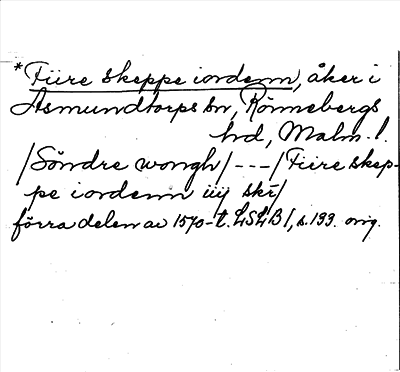 *Fiire skeppe iordenn, åker i
Asmundtorps sn, Rönnebergs
hd, Malm. l.
/Söndre wongh/---/Fiire skep-
pe iordenn iiij skr/
förra delen av 1570-t. LSLB I, s. 199. orig.